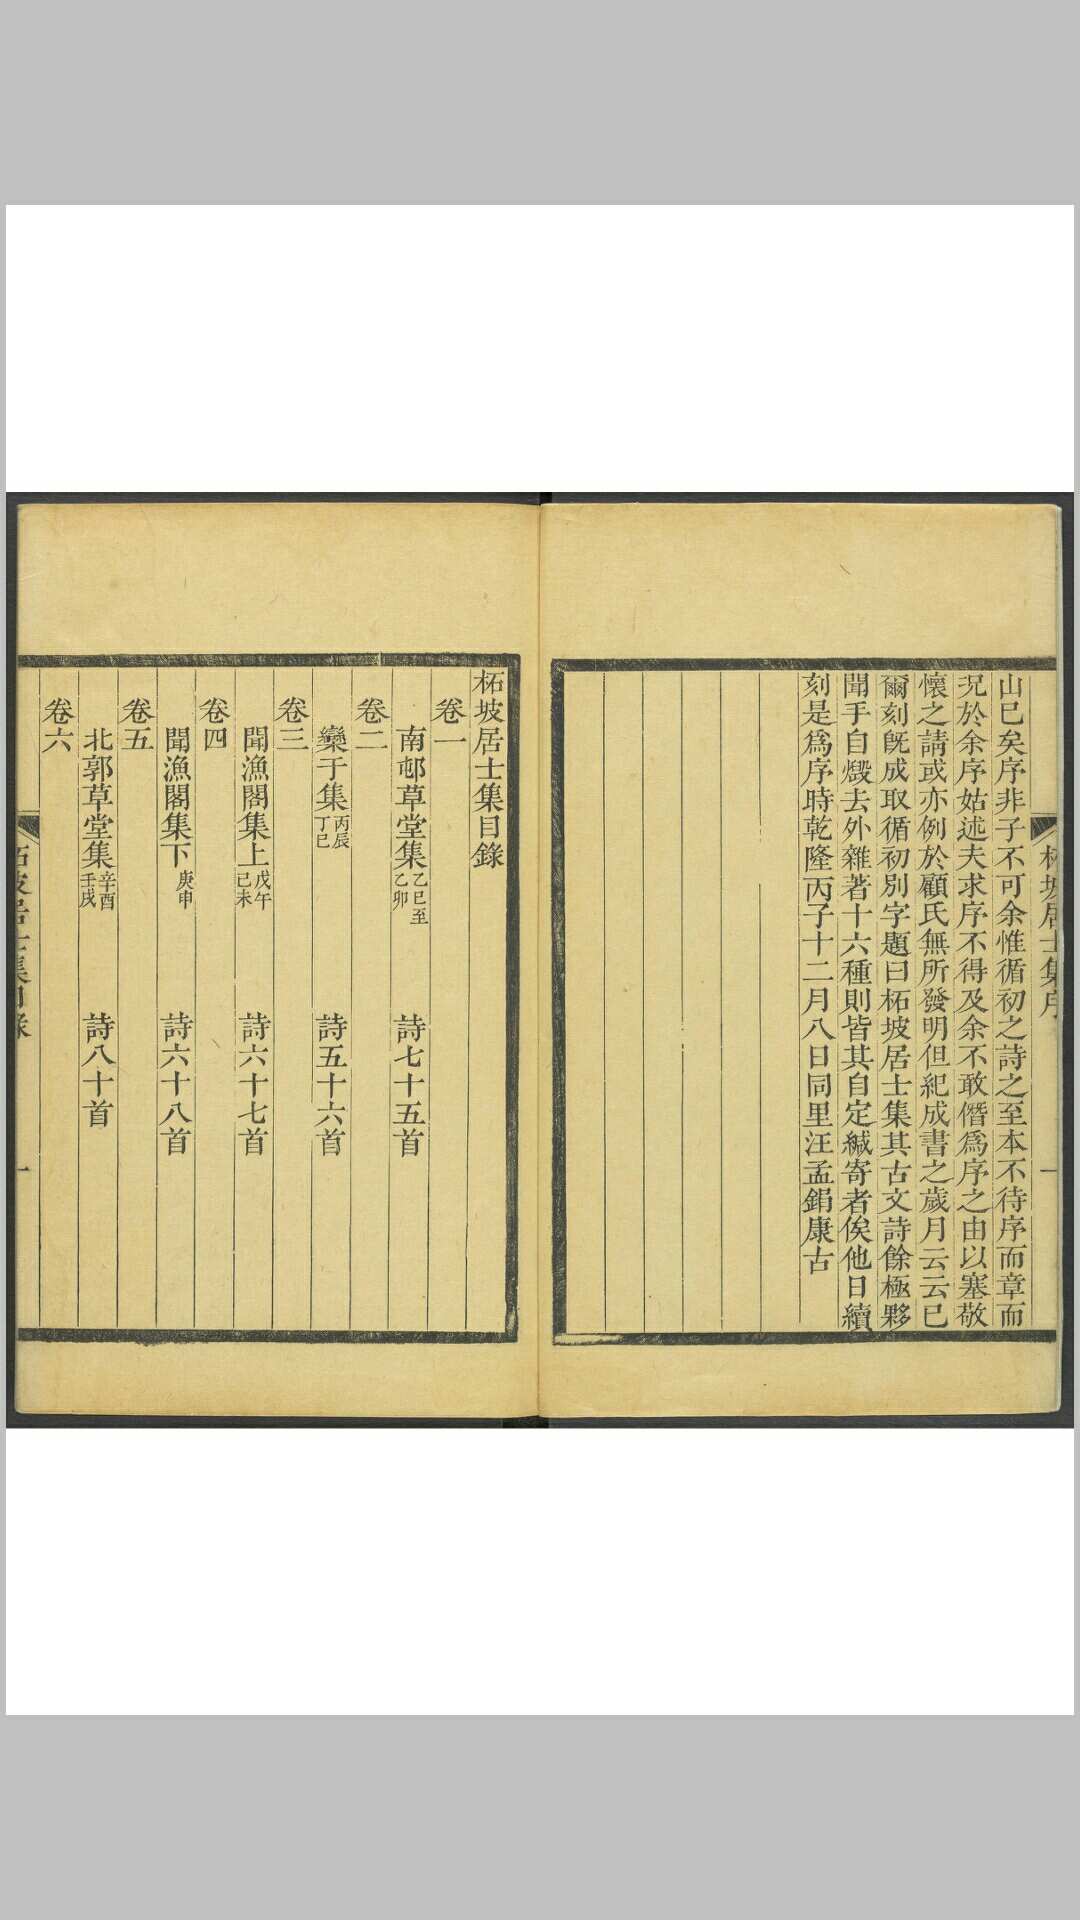 柘坡居士集序
一
山已矣序非子不可余惟循初之詩之至本不待序而章而
況於余序姑述夫求序不得及余不敢僭為序之由以塞敬
懷之請或亦例於顧氏無所發明但紀成書之歲月云云已
爾刻旣成取循初別字題曰柘坡居士集其古文詩餘極夥
聞手自燬去外雜著十六種則皆其自定緘寄者俟他日續
刻是爲序時乾隆丙子十二月八日同里汪孟鋗康古
柘坡居士集目錄
卷一
南邨草堂集 乙巳至乙卯 詩七十五首
卷二
欒于集 丙辰丁巳 詩五十六首
卷三
聞漁閣集上 戊午己未 詩六十七首
卷四
聞漁閣集下 庚申 詩六十八首
卷五
北郭草堂集 辛酉壬戌 詩八十首
卷六
柘坡居士集目錄
一